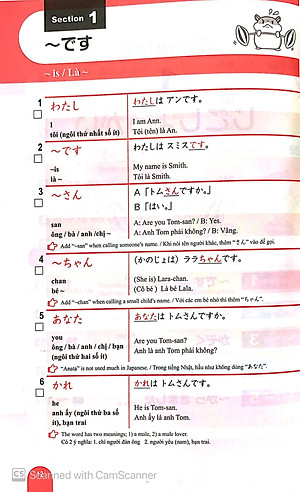 Section 1
〜です
~ is / Là ~
1 わたし
わたしは アンです。
I
tôi (ngôi thứ nhất số ít)
I am Ann.
Tôi (tên) là An.
2 〜です
わたしは スミスです。
~is
là ~
My name is Smith.
Tôi là Smith.
3 〜さん
A「トムさんですか。」
B「はい。」
san
ông / bà / anh /chị ~
A: Are you Tom-san? / B: Yes.
A: Anh Tom phải không? / B: Vâng.
Add "~san" when calling someone's name. / Khi nói tên người khác, thêm "さん" vào để gọi.
4 〜ちゃん
(かのじょは) ララちゃんです。
chan
bé ~
(She is) Lara-chan.
(Cô bé ) Là bé Lala.
Add "~chan" when calling a small child's name. / Với các em bé nhỏ thì thêm "ちゃん".
5 あなた
あなたは トムさんですか。
you
ông / bà / anh / chị / bạn
(ngôi thứ hai số ít)
Are you Tom-san?
Anh là anh Tom phải không?
"Anata" is not used much in Japanese. / Trong tiếng Nhật, hầu như không dùng "あなた".
6 かれ
かれは トムさんです。
he
anh ấy (ngôi thứ ba số
ít), bạn trai
He is Tom-san.
Anh ấy là anh Tom.
The word has two meanings; 1) a male, 2) a male lover.
Có 2 ý nghĩa: 1. chỉ người đàn ông 2. người yêu (nam), bạn trai.
CS Scanned with CamScanner